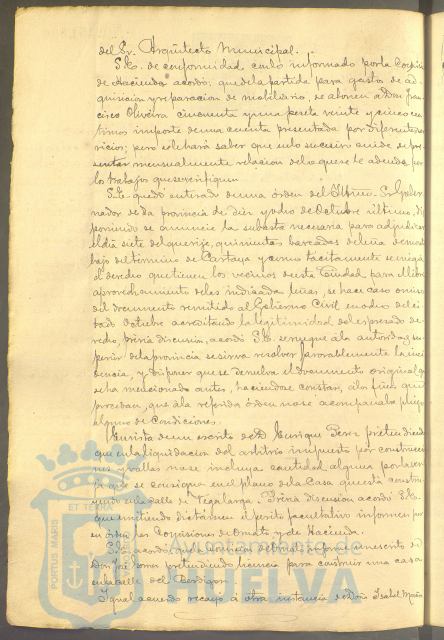 del Sr. Arquitecto Municipal.
S.E. de conformidad con lo informado por la Comisión
de Hacienda acordó; que de la partida para gastos de ad-
quisicion y reparacion de mobiliario, se abonen a Don Fran-
cisco Oliveira cincuenta y una peseta veinte y cinco cen-
timos importe de una cuenta presentada por diferentes ser-
vicios; pero se le hará saber que en lo sucesivo cuide de pre-
sentar mensualmente relacion de lo que se le adeuda por
los trabajos que verifique.
S.E. quedó enterado de una órden del Iltmo. Sr. Gober-
nador de la provincia de diez y ocho de Octubre último, dis-
poniendo se anuncie la subasta necesaria para adjudicar
el dia siete del que rije, quinientas barcadas de leña de mon-
te bajo del termino de Cartaya y como tacitamente se niega
el derecho que tienen los vecinos de esta Ciudad para el libre
aprovechamiento de las indicadas leñas, se hace caso omiso
del documento remitido al Gobierno Civil en
de Octubre acreditando la legitimidad del espresado de-
recho, prévia discusion, acordó S.E. se ruegue á la autoridad su-
perior de la provincia se sirva resolver favorablemente la inci-
dencia, y disponer que se devuelva el documento original que
se ha mencionado antes, haciendose constar, á los fines que
procedan, que á la referida órden no se acompañaba pliego
alguno de Condiciones.
En vista de un escrito de D. Enrique Perez pretendiendo
que en la liquidacion del arbitrio impuesto por construccio-
nes y vallas no se incluya cantidad alguna por
lo que se consigna en el plano de la Casa que está constru-
yendo en la calle de Vegalarga. Prévia discusion acordó S.E.
que emitiendo dictámen el perito facultativo informen por
su órden las Comisiones de Ornato y de Hacienda.
Se acordó
Don José pretendiendo licencia para construir una casa
en la calle del
Igual acuerdo recayó á otra instancia de Doña Isabel
ET TERRAE
PORTUS MARIS
Ayuntamiento de
HUELVA